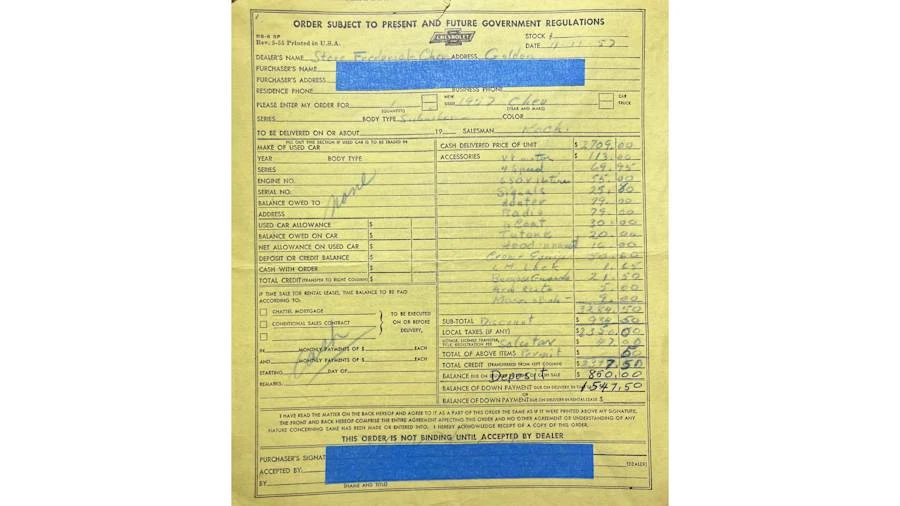 ORDER SUBJECT TO PRESENT AND FUTURE GOVERNMENT REGULATIONS
CHEVROLET
Rev. 5-55 Printed in U.S.A.
STOCK #
DATE 11-11-57
DEALER'S NAME Steve Frederick Chev ADDRESS Golden
PURCHASER'S NAME
PURCHASER'S ADDRESS
RESIDENCE PHONE BUSINESS PHONE
PLEASE ENTER MY ORDER FOR 1 NEW USED 1957 Chev CAR TRUCK
(QUANTITY) (YEAR AND MAKE)
SERIES BODY TYPE Suburban COLOR
TO BE DELIVERED ON OR ABOUT 19 SALESMAN
FILL OUT THIS SECTION IF USED CAR IS TO BE TRADED IN
MAKE OF USED CAR
YEAR BODY TYPE
SERIES
ENGINE NO.
SERIAL NO.
BALANCE OWED TO
ADDRESS
none
USED CAR ALLOWANCE $
BALANCE OWED ON CAR $
NET ALLOWANCE ON USED CAR $
DEPOSIT OR CREDIT BALANCE $
CASH WITH ORDER $
TOTAL CREDIT (TRANSFER TO RIGHT COLUMN) $
IF TIME SALE (OR RENTAL LEASE), THE BALANCE TO BE PAID ACCORDING TO:
CHATTEL MORTGAGE
CONDITIONAL SALES CONTRACT
TO BE EXECUTED
ON OR BEFORE
DELIVERY,
cash
IN MONTHLY PAYMENTS OF $ EACH
AND MONTHLY PAYMENTS OF $ EACH
STARTING DAY OF
REMARKS:
CASH DELIVERED PRICE OF UNIT $ 2709.00
ACCESSORIES V8 motor $ 113.00
4 Speed 69.95
Signals 25.00
Heater 79.00
Radio 79.00
Coat 30.00
Tutone 20.00
Hood 16.00
Crome 50.00
Lock 1.65
Bumper Guards 21.50
Arm Rests 5.00
9.00
3284.50
SUB-TOTAL Discount $ 934.50
LOCAL TAXES (IF ANY) $ 2350.00
LICENSE, LICENSE TRANSFER, TITLE, REGISTRATION FEE Sales tax $ 47.00
TOTAL OF ABOVE ITEMS Permit $ 50
TOTAL CREDIT (TRANSFERRED FROM LEFT COLUMN) $ 2397.50
BALANCE Deposit $ 850.00
BALANCE OF DOWN PAYMENT 1547.50
OR
BALANCE OF DOWN PAYMENT DUE ON DELIVERY IN RENTAL LEASE $
I HAVE READ THE MATTER ON THE BACK HEREOF AND AGREE TO IT AS A PART OF THIS ORDER THE SAME AS IF IT WERE PRINTED ABOVE MY SIGNATURE.
THE FRONT AND BACK HEREOF COMPRISE THE ENTIRE AGREEMENT AFFECTING THIS ORDER AND NO OTHER AGREEMENT OR UNDERSTANDING OF ANY
NATURE CONCERNING SAME HAS BEEN MADE OR ENTERED INTO. I HEREBY ACKNOWLEDGE RECEIPT OF A COPY OF THIS ORDER.
THIS ORDER IS NOT BINDING UNTIL ACCEPTED BY DEALER
PURCHASER'S SIGNAT
ACCEPTED BY: (DEALER)
BY
(NAME AND TITLE)